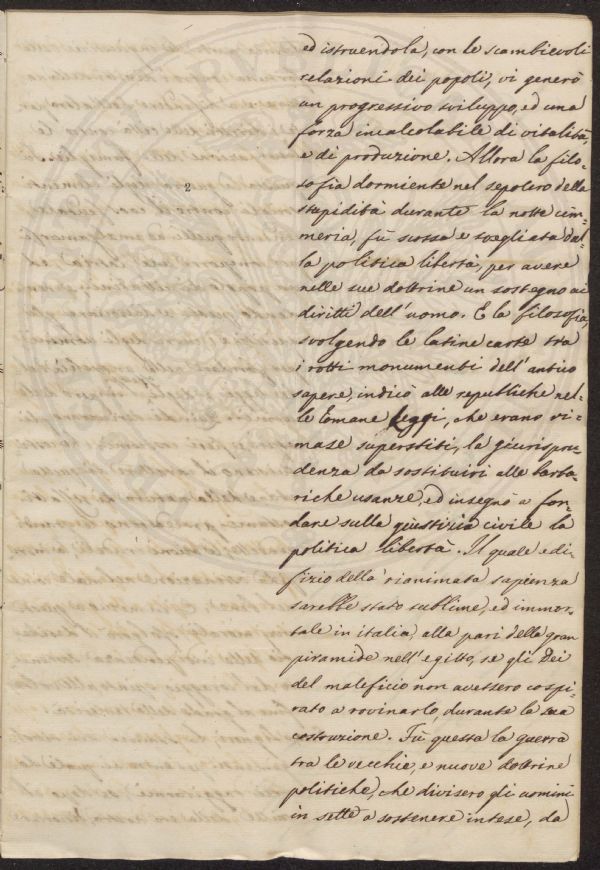 ed istruendola, con le scambievoli
relazioni dei popoli, vi generò
un progressivo sviluppo, ed una
forza incalcolabile di vitalità,
e di produzione. Allora la filo-
sofia, dormiente nel sepolcro della
2
stupidità durante la notte cim-
meria, fù scossa e svegliata dal-
la politica libertà, per avere
nelle sue dottrine un sostegno ai
diritti dell'uomo. E la filosofia,
svolgendo le latine carte tra
i rotti monumenti dell'antico
sapere, indicò alle repubbliche nel-
le Romane leggi, che erano ri-
mase superstiti, la giurispru-
denza da sostituirsi alle barba-
riche usanze, ed insegnò a fon-
dare sulla giustizia civile la
politica libertà. Il quale edi-
fizio della rianimata sapienza
sarebbe stato sublime, ed immor-
tale in italia, alla pari della gran
piramide nell'egitto, se gli Dei
del maleficio non avessero cospi-
rato a rovinarlo, durante la sua
costruzione. Fù questa la guerra
tra le vecchie, e nuove dottrine
politiche, che divisero gli uomini
in sette a sostenere intese, da